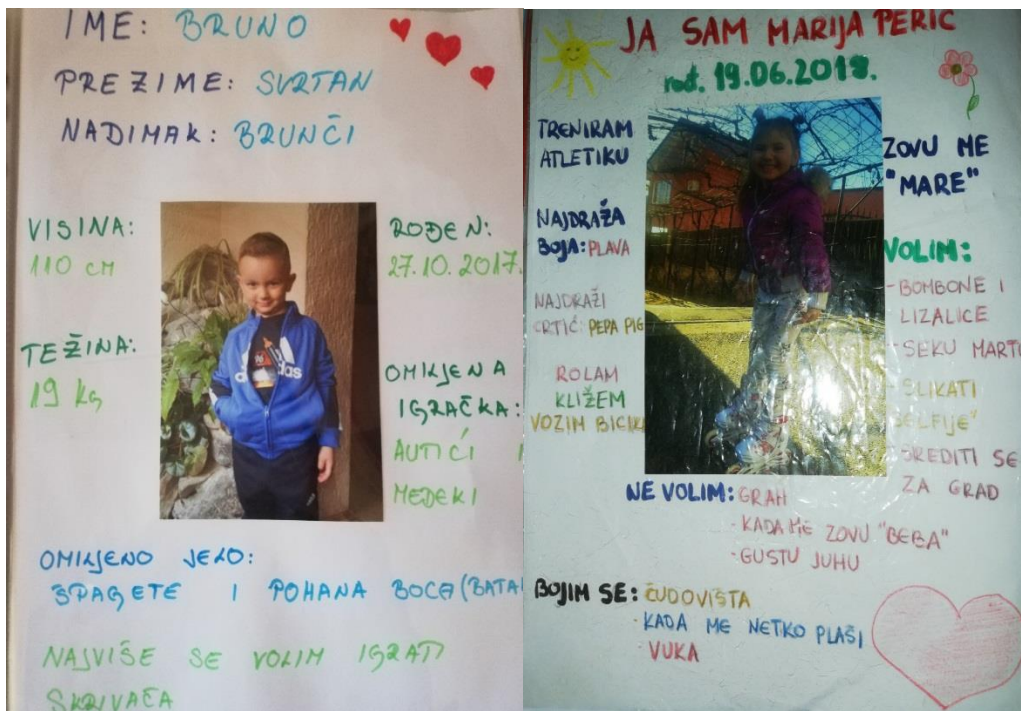 IME: BRUNO
PREZIME: SVRTAN
NADIMAK: BRUNČI
VISINA:
110 cm
TEŽINA:
19 kg
adidas
ROĐEN:
27.10.2017.
OMILJENA
IGRAČKA:
AUTIĆI I
MEDEKI
OMILJENO JELO:
ŠPAGETE I POHANA BOCA (BATA
NAJVIŠE SE VOLIM IGRATI
SKRIVAČA
JA SAM MARIJA PERIĆ
rođ. 19.06.2018.
TRENIRAM
ATLETIKU
NAJDRAŽA
BOJA: PLAVA
NAJDRAŽI
CRTIĆ: PEPA PIG
ROLAM
KLIŽEM
VOZIM BICIK
ZOVU ME
"MARE"
VOLIM:
- BOMBONE I
LIZALICE
- SEKU MARTU
- SLIKATI
SELFIJE"
UREDITI SE
ZA GRAD
NE VOLIM: GRAH
- KADA ME ZOVU "BEBA"
- GUSTU JUHU
BOJIM SE: ČUDOVIŠTA
- KADA ME NETKO PLAŠI
- VUKA